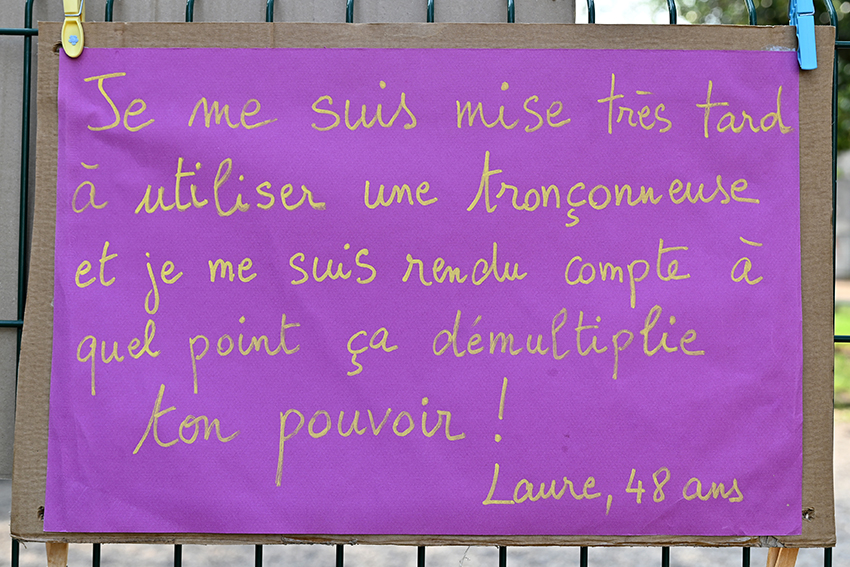 Je me suis mise très tard
à utiliser une tronçonneuse
et je me suis rendu compte à
quel point ça démultiplie
ton pouvoir !
Laure, 48 ans